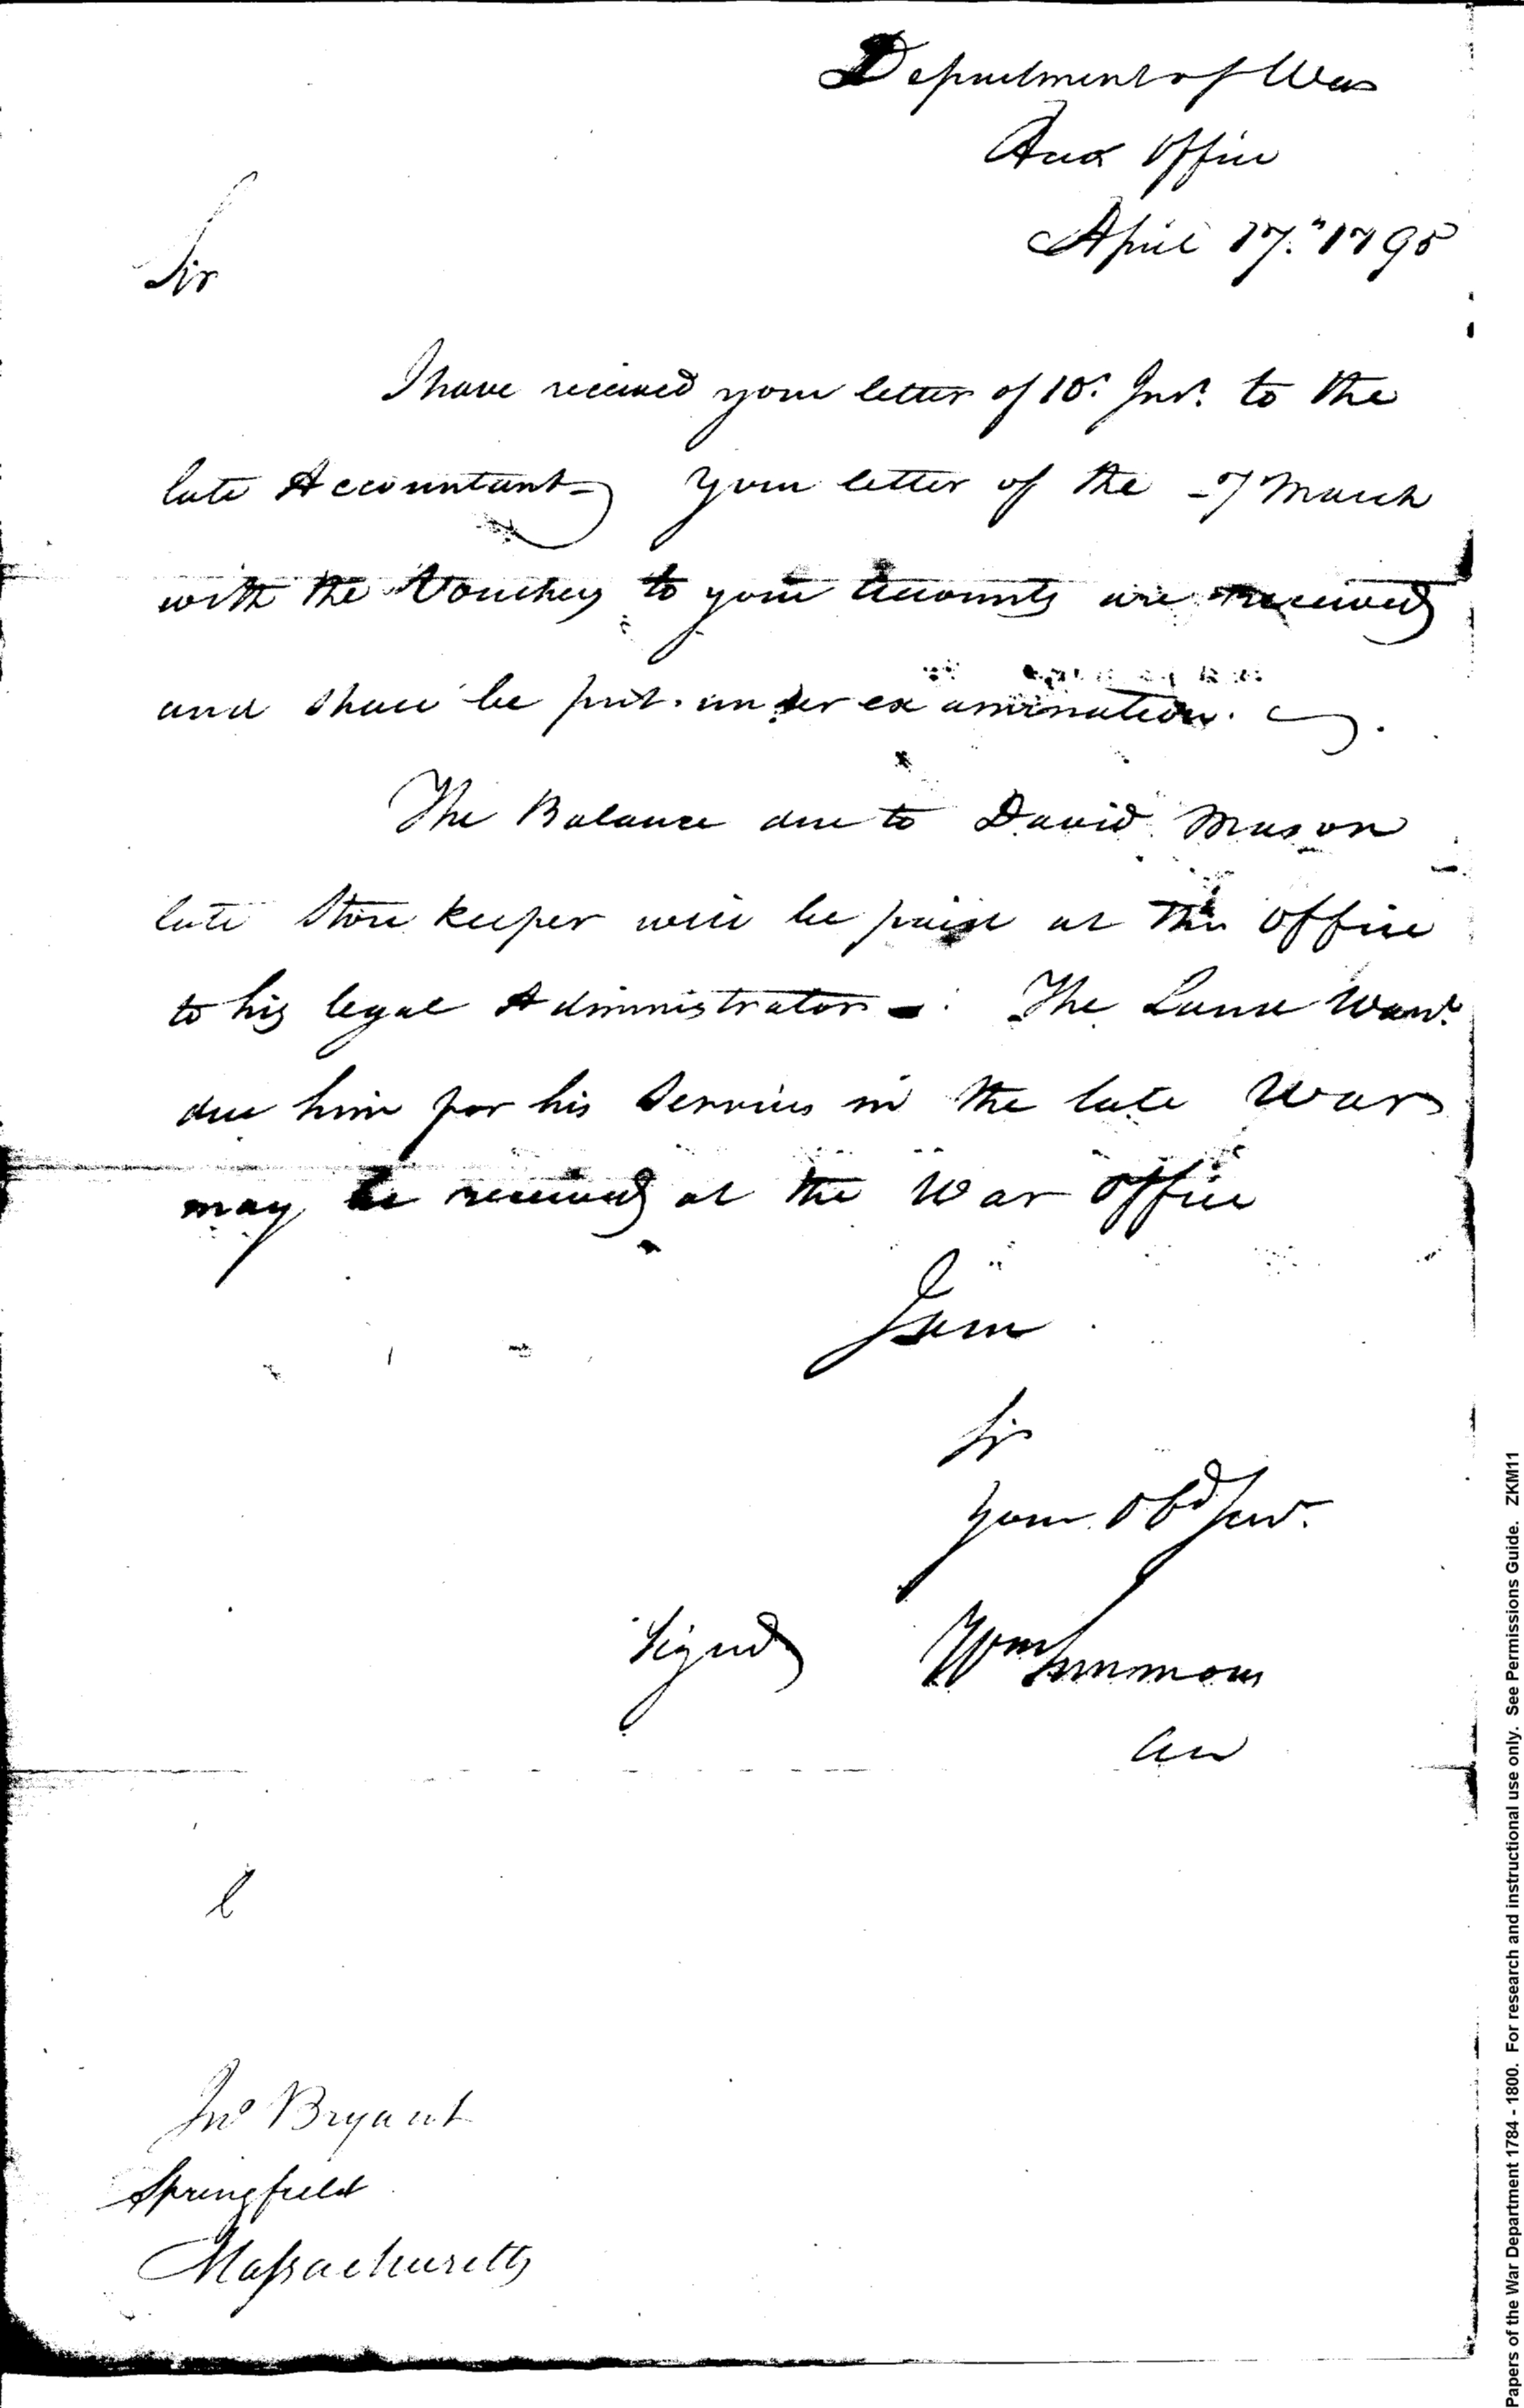 Department of War
Acct Office
April 17.th 1795
Sir
I have received your letter of 10th Inst. to the
late Accountant your letter of the 7 March
with the Vouchers to your Accounts are received
and shall be put under examination.
The Balance due to David Mason
late Store keeper will be paid at this office
to his legal Administrator. The Land Warrt
due him for his Services in the late War
may be received at the War Office
I am
Sir
your Obd Servt.
Signed Wm Simmons
Jno Bryant
Springfield
Massachusetts
Papers of the War Department 1784 - 1800. For research and instructional use only. See Permissions Guide. ZKM11